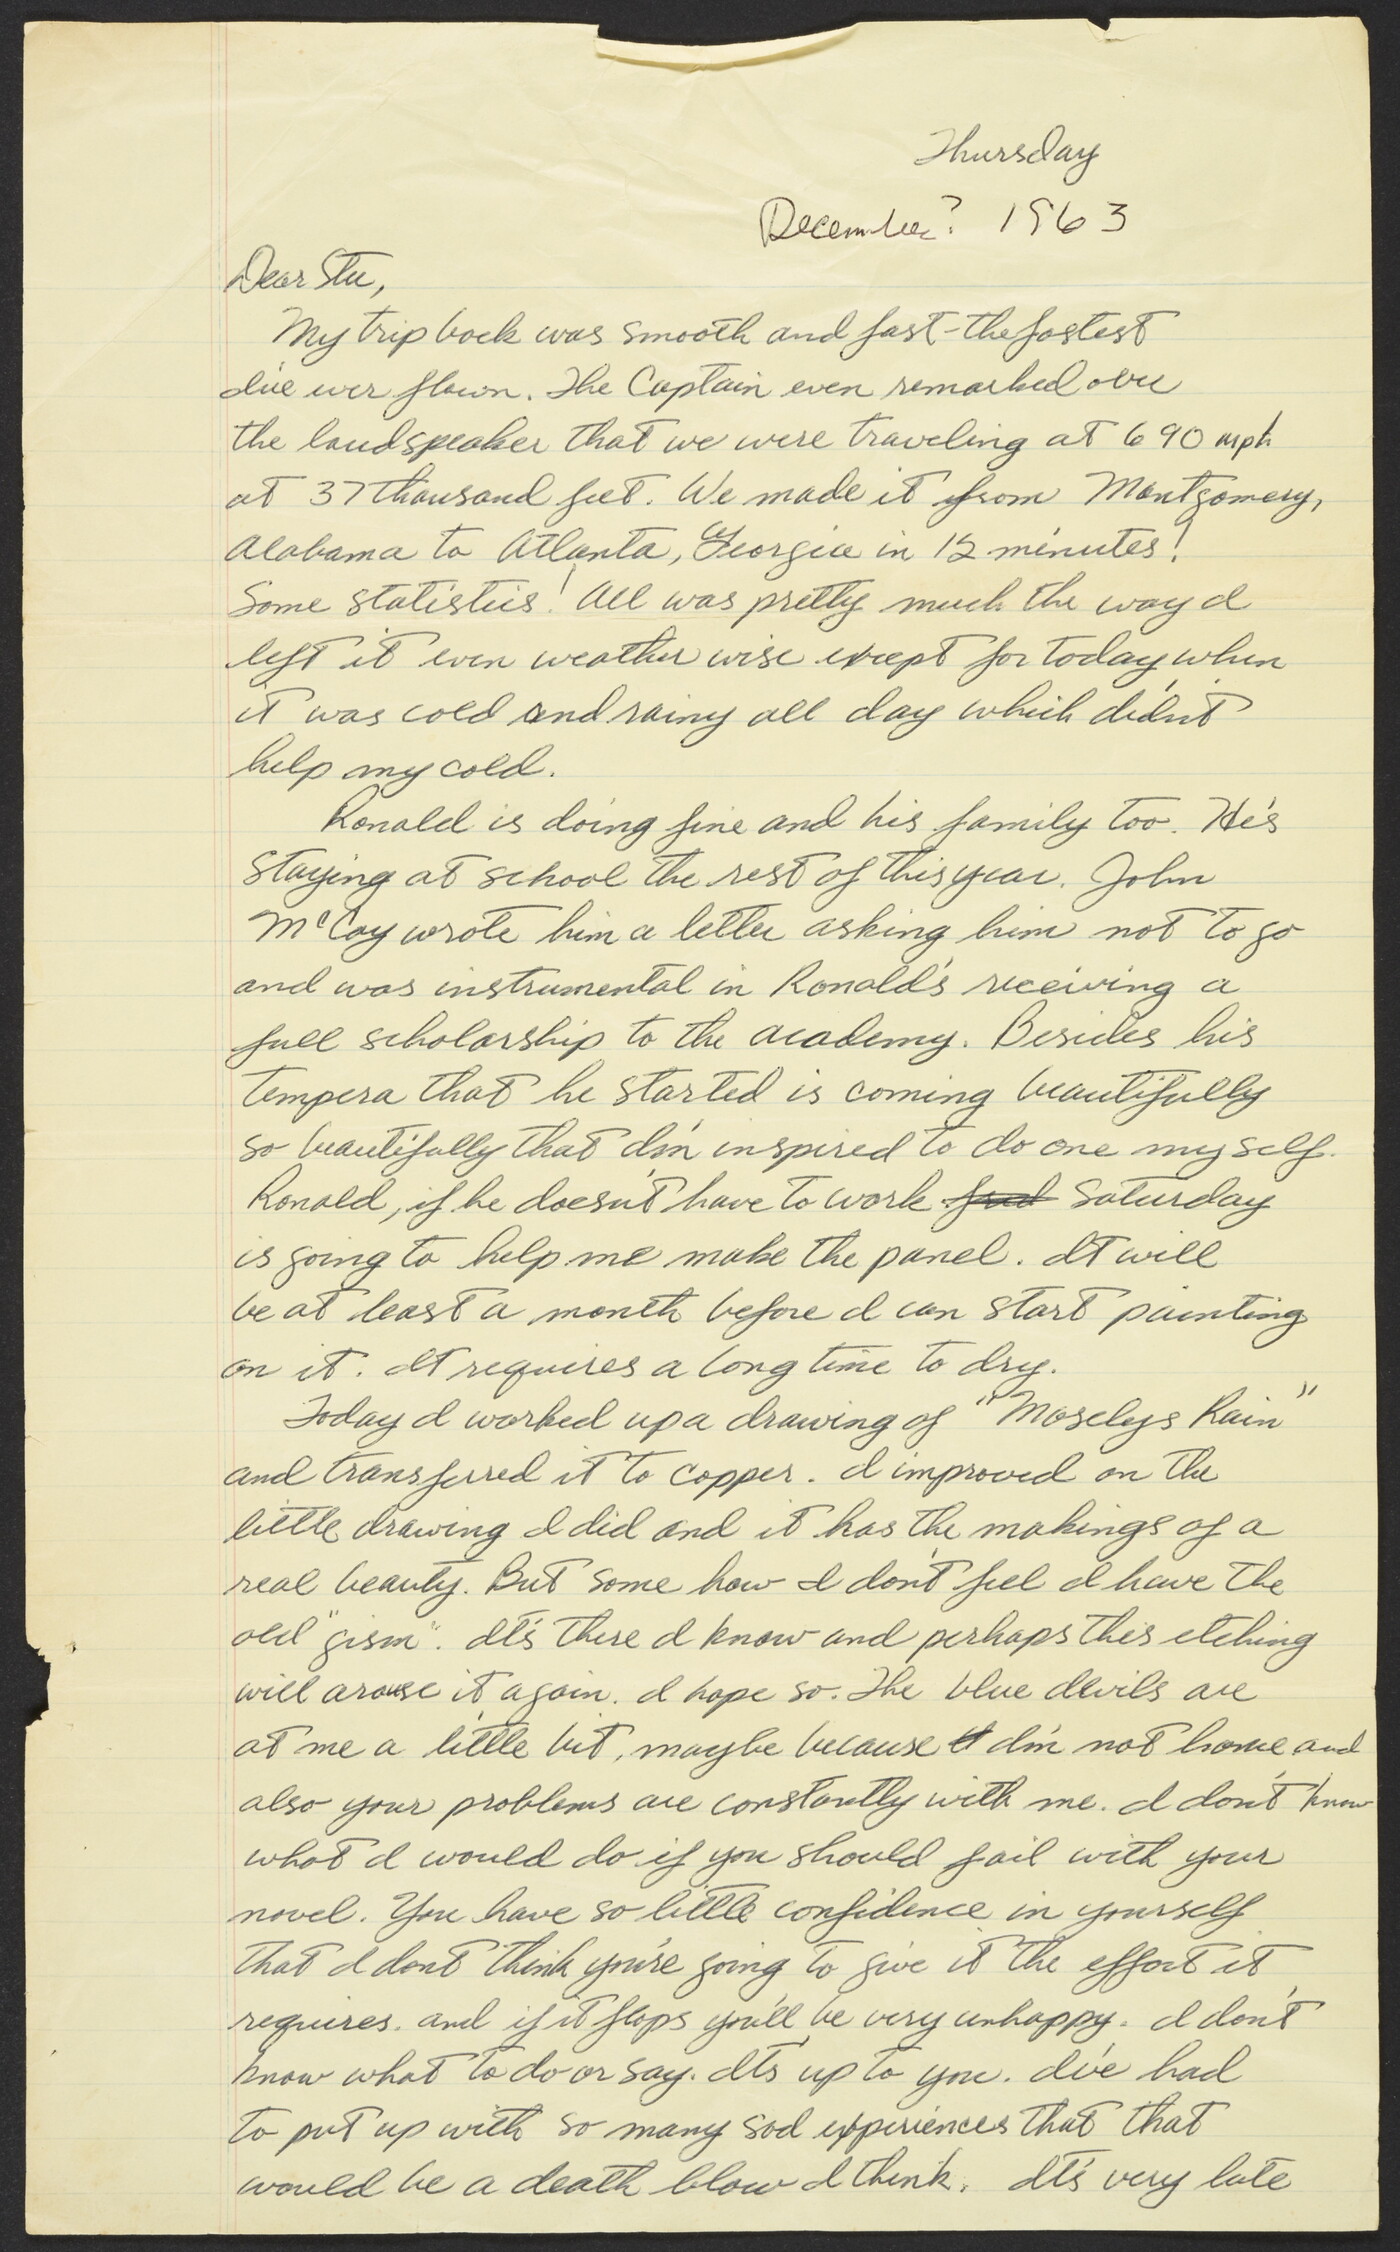 Thursday
December? 1963
Dear Stu,
My trip back was smooth and fast - the fastest
I've ever flown. The Captain even remarked over
the loudspeaker that we were traveling at 690 mph
at 37 thousand feet. We made it from Montgomery,
Alabama to Atlanta, Georgia in 12 minutes!
Some statistics! All was pretty much the way I
left it even weather wise except for today, when
it was cold and rainy all day which didn't
help my cold.
Ronald is doing fine and his family too. He's
staying at school the rest of this year. John
McCoy wrote him a letter asking him not to go
and was instrumental in Ronald's receiving a
full scholarship to the academy. Besides his
tempera that he started is coming beautifully
so beautifully that I'm inspired to do one myself.
Ronald, if he doesn't have to work Saturday
is going to help me make the panel. It will
be at least a month before I can start painting
on it. It requires a long time to dry.
Today I worked up a drawing of "Moselys Rain"
and transferred it to copper. I improved on the
little drawing I did and it has the makings of a
real beauty. But some how I don't feel I have the
old "gism". It's there I know and perhaps this etching
will arouse it again. I hope so. The blue devils are
at me a little bit, maybe because I'm not home and
also your problems are constantly with me. I don't know
what I would do if you should fail with your
novel. You have so little confidence in yourself
that I dont think you're going to give it the effort it
requires. and if it flops you'll be very unhappy. I don't
know what to do or say. It's up to you. I've had
to put up with so many sad experiences that that
would be a death blow I think. It's very late